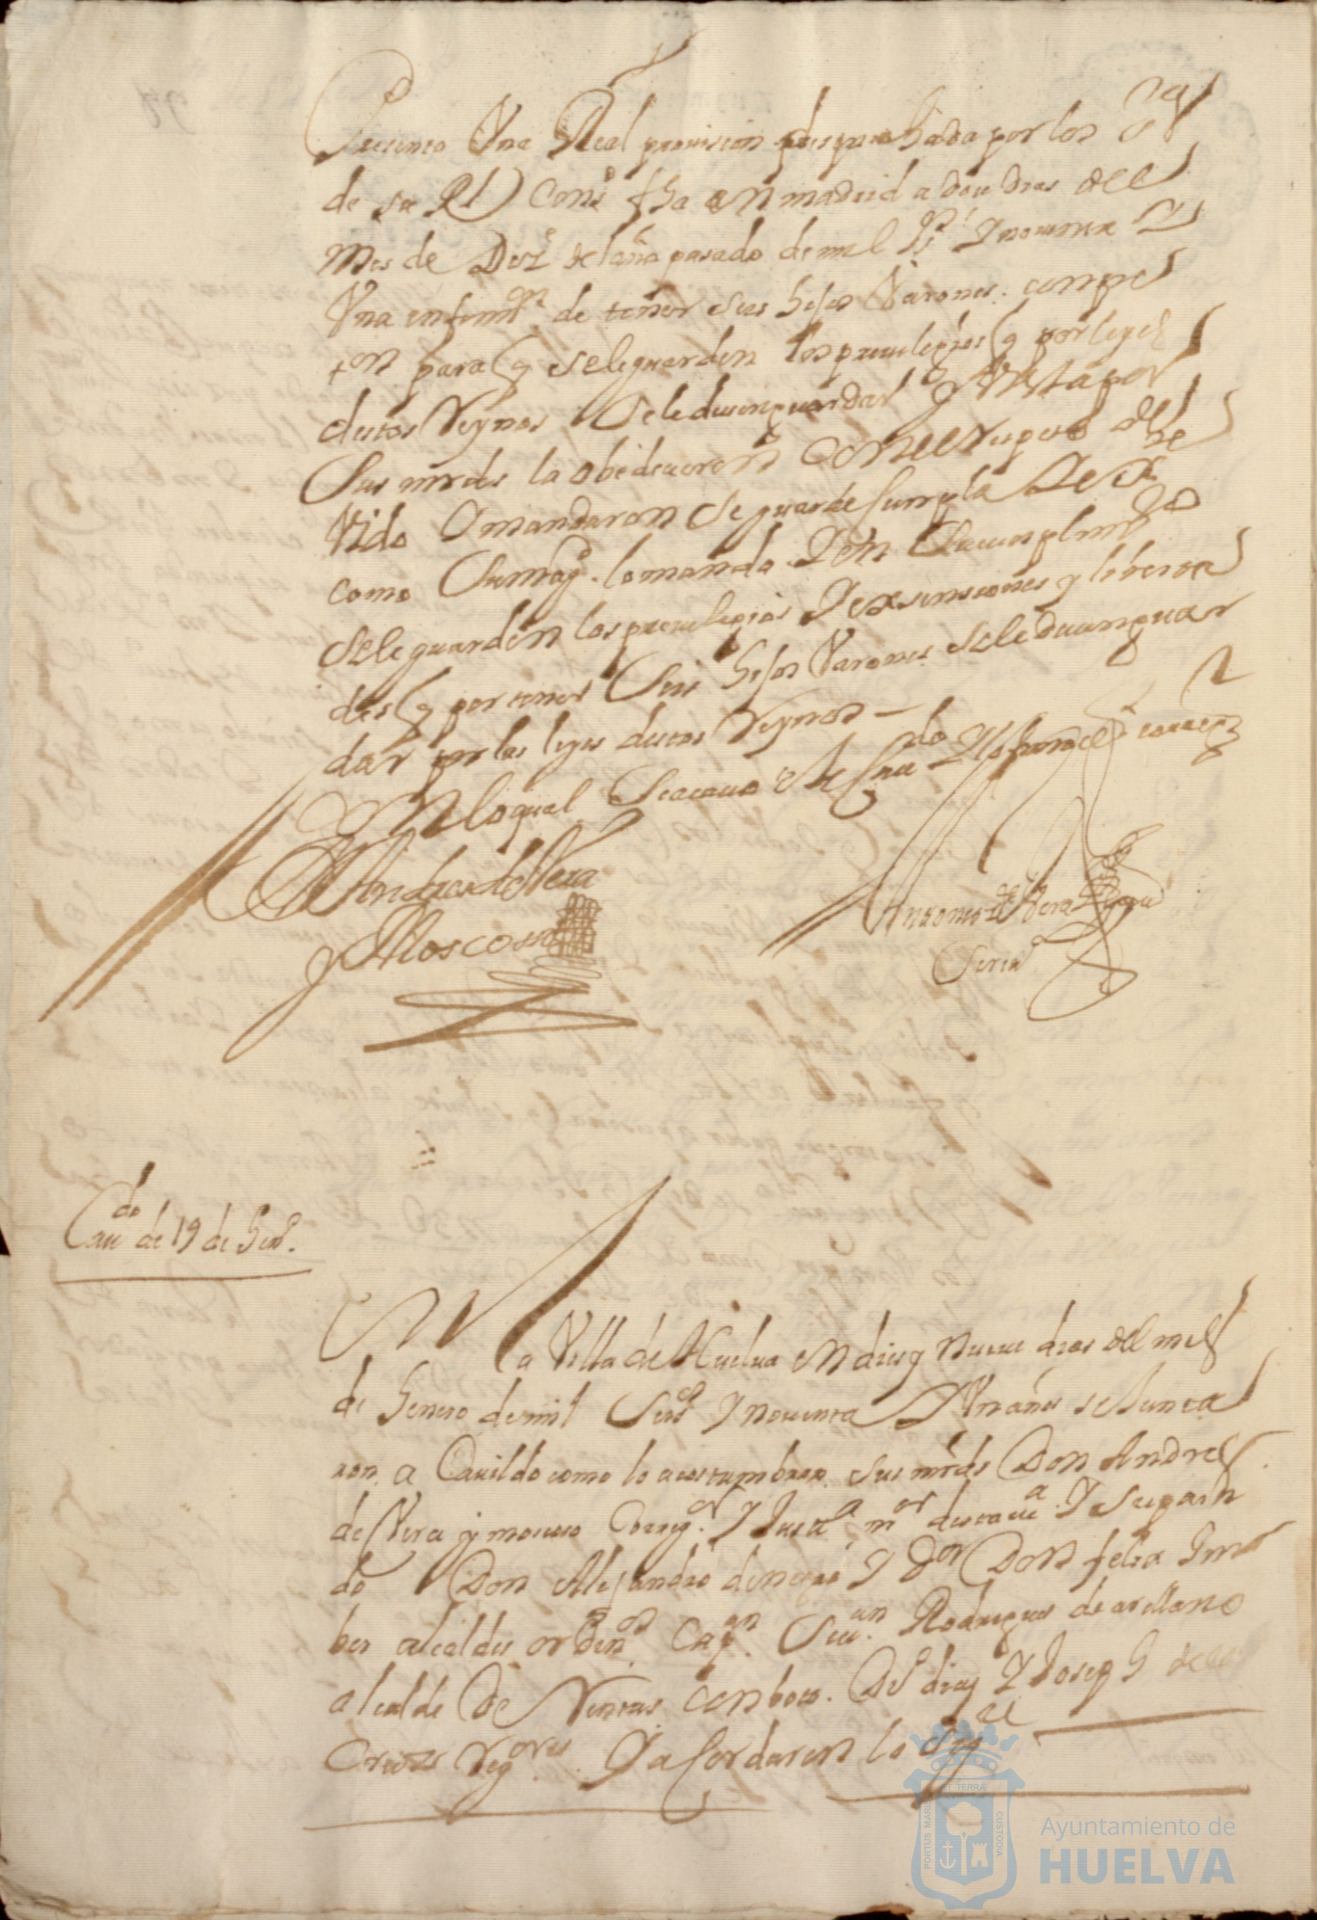 Presento Una Real provision despachada por los SS
de su Rl Conso fha en madrid a doze dias del
mes de Dize del año pasado de mil Ss Y nouenta Y
Una informon de tener seis hijos Varones. con pe
ton para q se le guarden los preuilegios q por leyes
destos Reynos se le deuen guardar y Vista por
Sus mrds la obedecieron con el respeto deue
Vido Y mandaron se guarde Cumpla
como Su magd. lo manda Y en Su cumplimto
se le guarden los preuilegios Y exsensiones y liberta
des q por tener Seis hijos Varones se le deuen guar
dar por las leyes destos Reynos —
En lo qual Se acauo este Caudo Y lo firmaron
Andres de Vera
y Moscosso
Antonio de Vera
Caudo de 19 de Heno.
En la Villa de Huelua en dies y nueue dias del mes
de Henero de mil Seiso Y nouenta Y Un años se Junta
ron a Cauildo como lo acostumbran sus mrds Don Andres
de Vera y moscoso Corregor. Y Justa mor desta ua Y su parti
do Don Alejandro de negro Y Dor Don felix
ber alcaldes ordenos Capan. Seuan. Rodrigues de arellano
alcalde De Rentas con boto. Do dias Y Josep G de la
Cruz Regores. Y acordaron lo sigte
PORTUS MARIS ET TERRÆ CUSTODIA
Ayuntamiento de
HUELVA